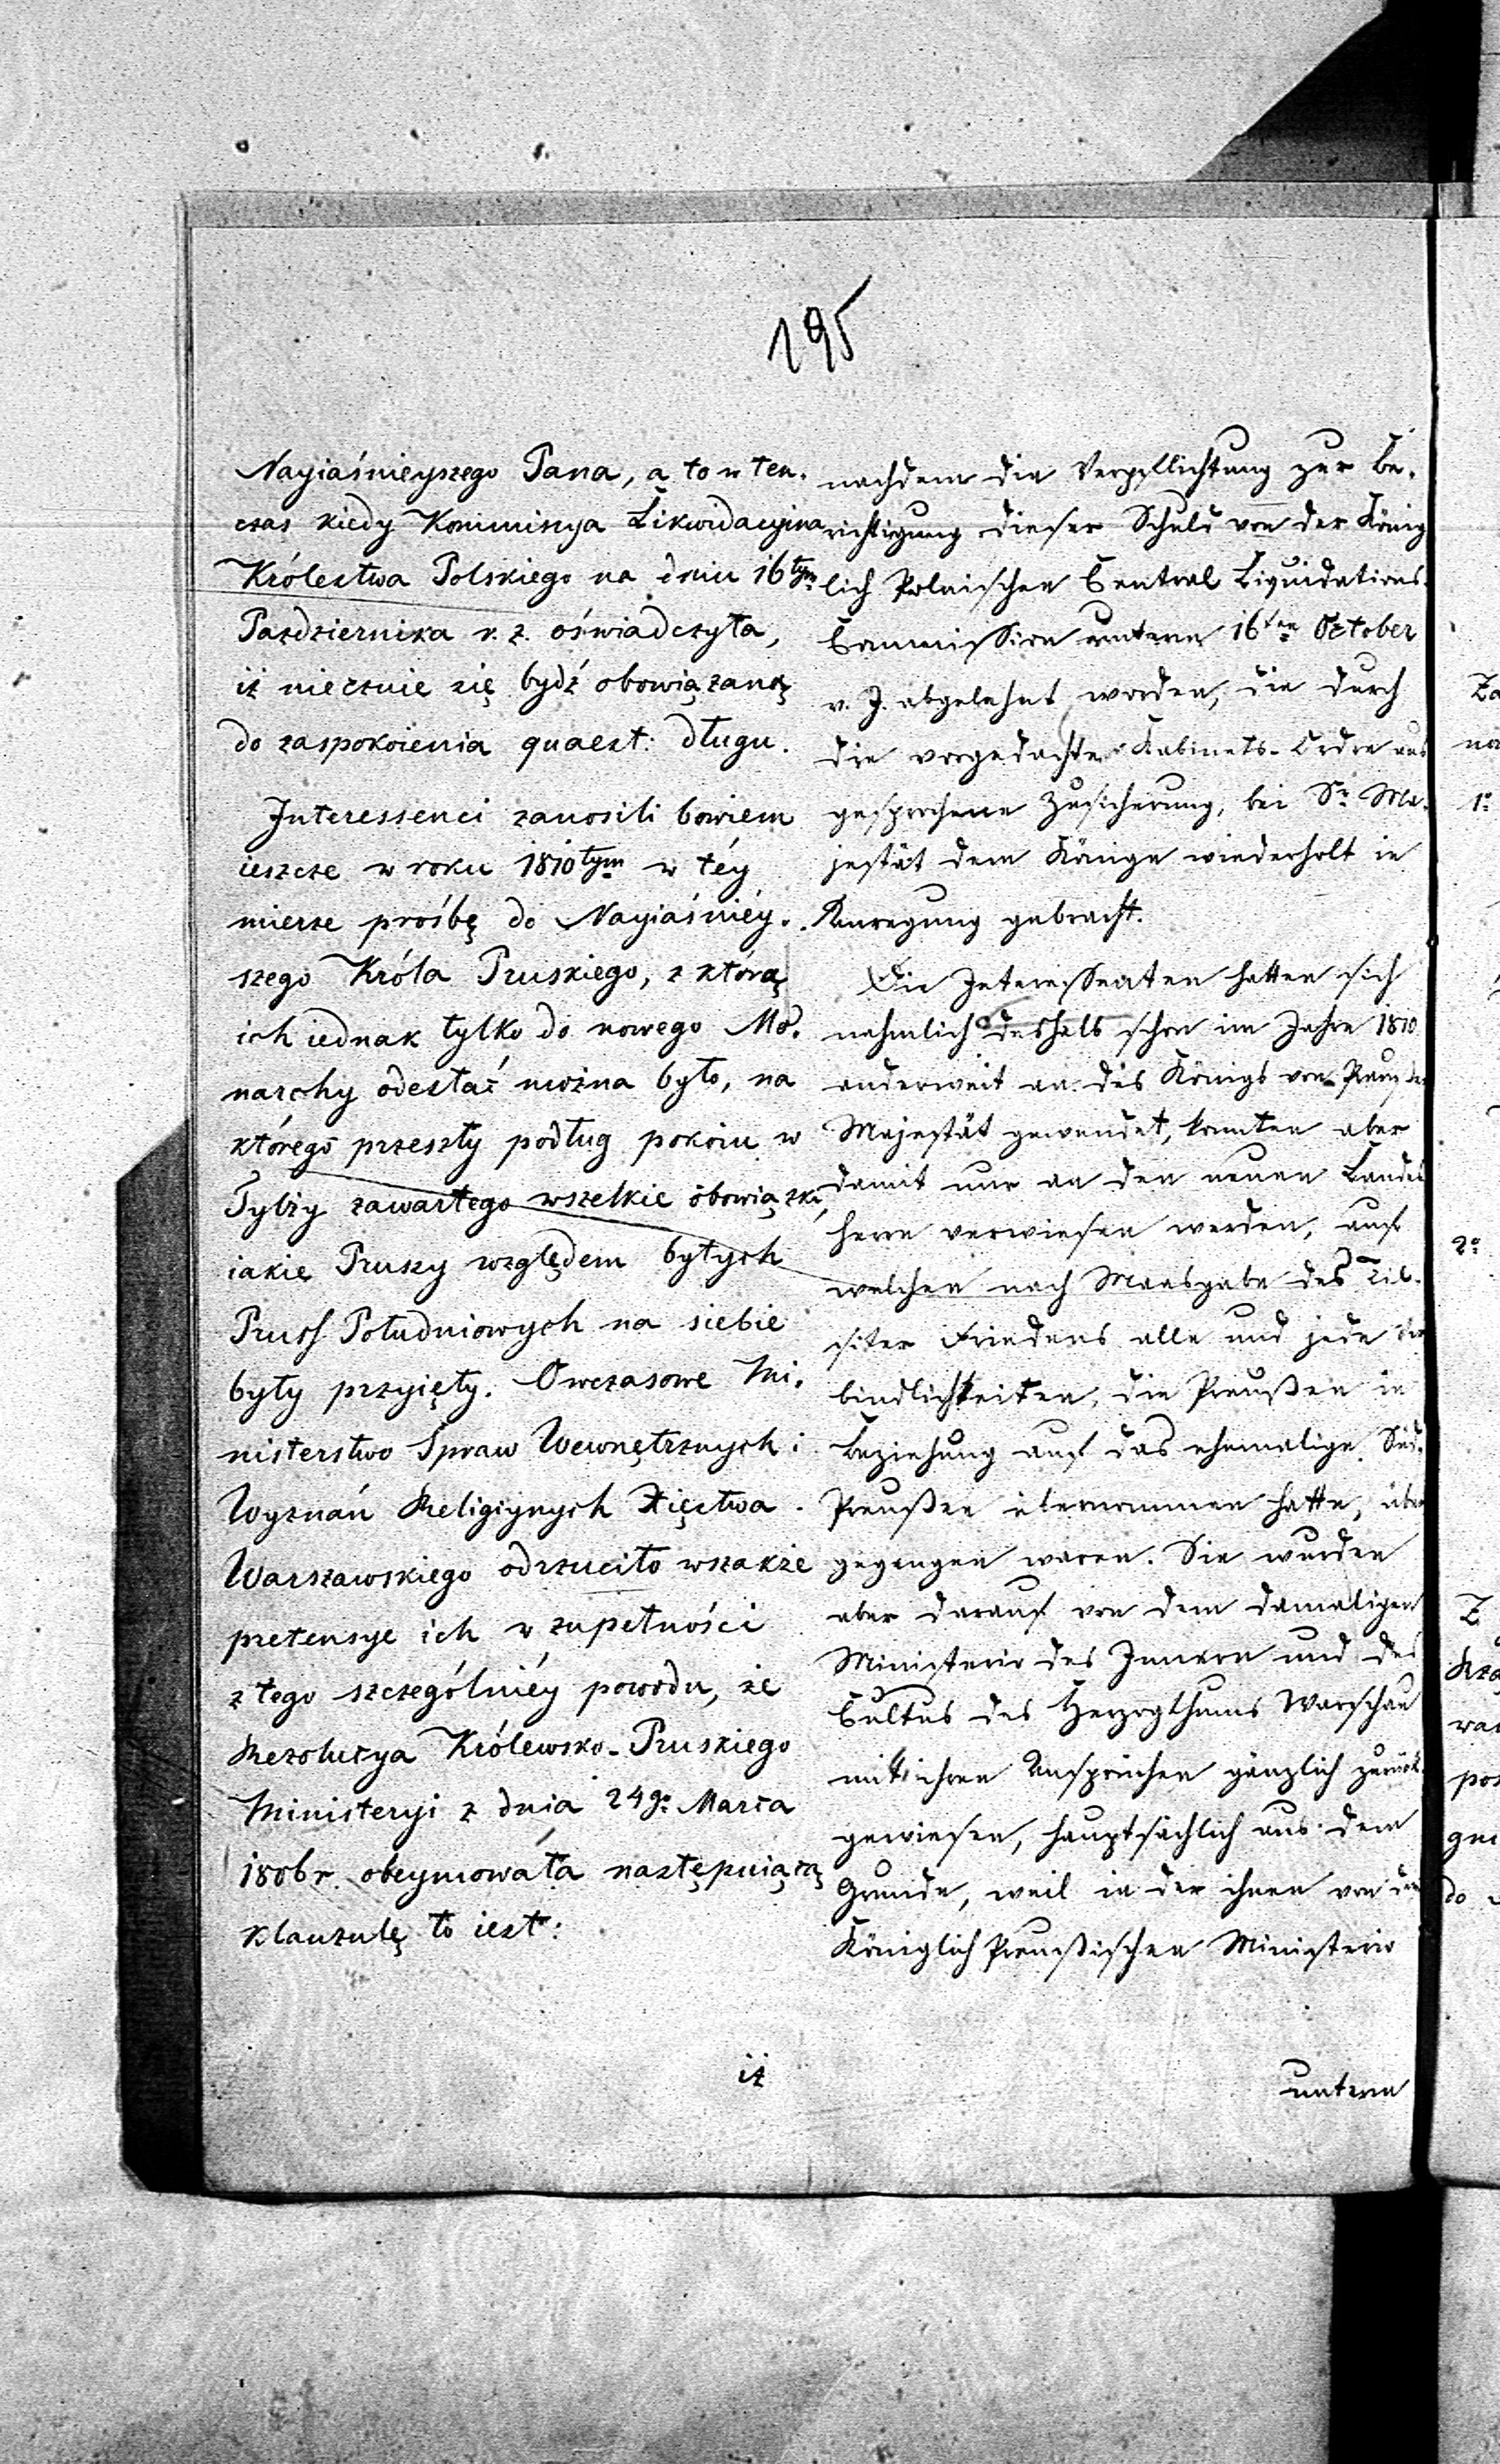 195
Nayiaśnieyszego Pana, a to w ten.
czas kiedy Kommissya Likwidacyina
Królestwa Polskiego na dniu 16tym
Pazdziernika r. z. oświadczyła,
iż nieczuie się bydź obowiązaną
do zaspokoienia quaest: długu.
Interessenci zanosili bowiem
ieszcze w roku 1810tym w téy
mierze prośbę do Nayiaśniéy.
szego Króla Pruskiego, z którą
ich iednak tylko do nowego Mo.
narchy odesłać można było, na
którego przeszły podług pokoiu w
Tylży zawartego wszelkie obowiązki,
iakie Prusy względem byłych
Pruss Południowych na siebie
były przyięły. Owczasowe Mi.
nisterstwo Spraw Wewnętrznych i
Wyznań Religiynych Xięstwa
Warszawskiego odrzuciło wszakże
pretensye ich w zupełności
z tego szczególniéy powodu, że
Rezolucya Królewsko-Pruskiego
Ministeryi z dnia 24go Marca
1806 r. obeymowała następuiącą
klauzulę to iest:
iż
nachdem die Verpflichtung zur Be.
richtigung dieser Schuld von der König
lich Polnischen Central Liquidations-
Commission unterm 16ten October
v. J. abgelehnt worden, die durch
die vorgedachte Kabinets-Ordre aus
gesprochene Zusicherung, bei Sr Ma-
jestät dem Könige wiederholt in
Anregung gebracht.
Die Interessenten hatten sich
nehmlich deshalb schon im Jahre 1810
anderweit an des Königs von Preußen
Majestät gewendet, konnten aber
damit nur an den neuen Landes
herrn verwiesen werden, auf
welchen nach Maasgabe des Til-
siter Friedens alle und jede Ver
bindlichkeiten, die Preußen in
Beziehung auf das ehemalige Süd-
Preußen übernommen hatte, über
gegangen waren. Sie wurden
aber darauf von dem damaligen
Ministerio des Innern und des
Cultus des Herzogthums Warschau
mit ihren Ansprüchen gänzlich zurück
gewiesen, hauptsächlich aus dem
Grunde, weil in der ihnen von dem
Königlich Preußischen Ministerio
unterm
1o
2o
Z
do